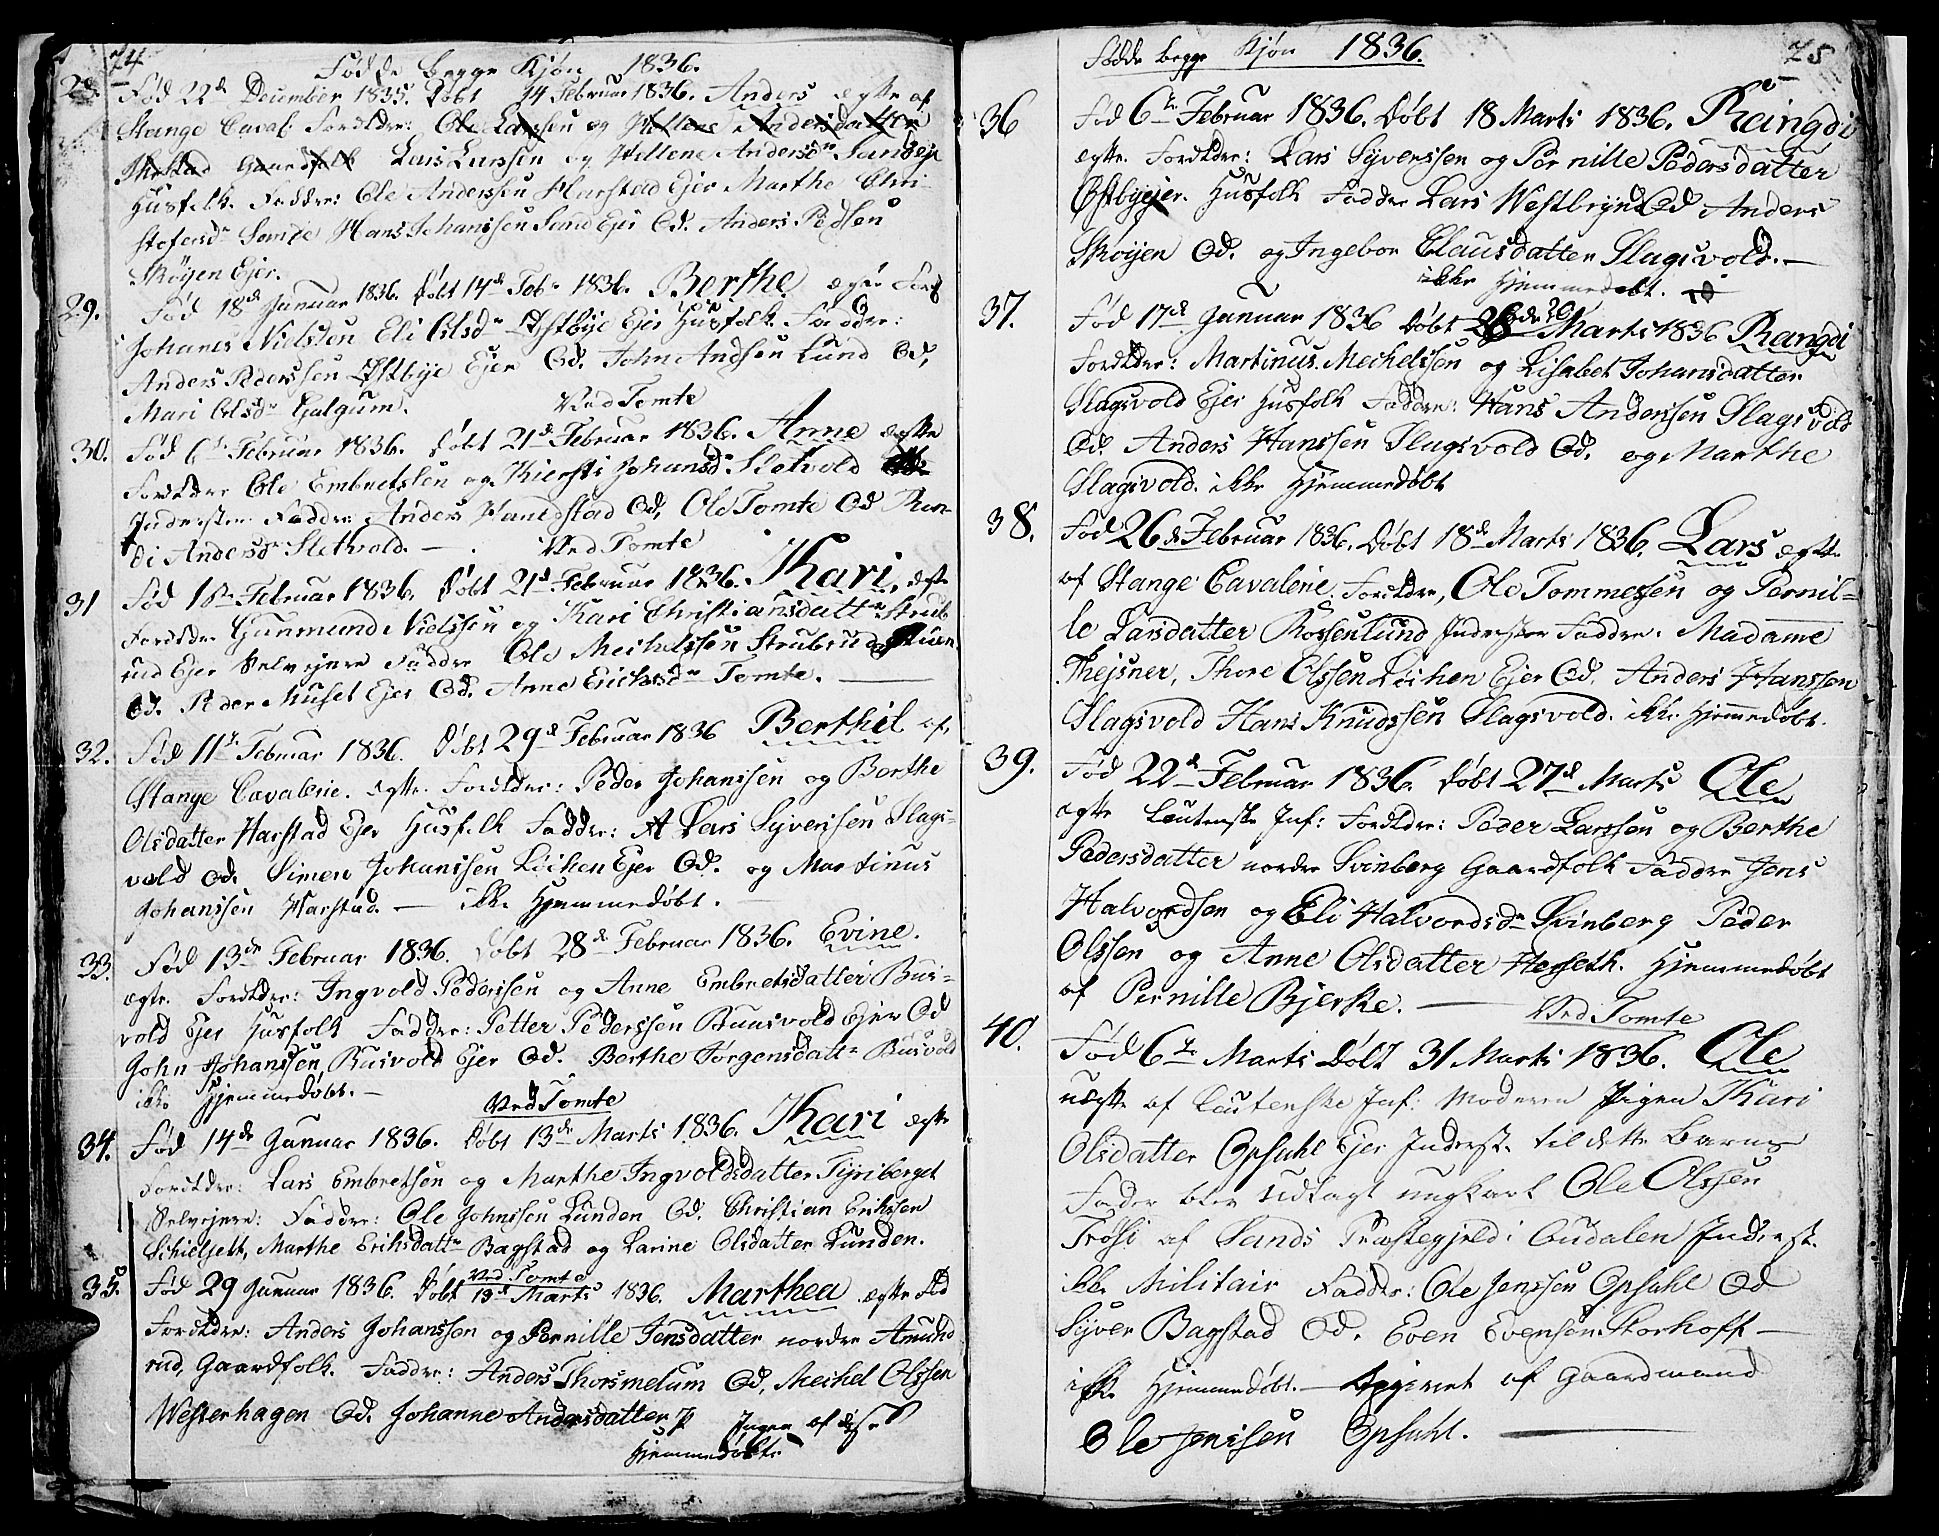 74
Fødde begge Kjøn 1836.
28. Fød 22d December 1835. Døbt 14 Februar 1836. Anders ægte af
Stange Caval: Foreldre: Ole Larssen og Hellene Andersdatter
Gaardfolk Lars Larssen og Hellene Andersdr Sandeje
Husfolk. Faddre: Ole Anderssen Harstad Ejer Marthe Chri-
stofersdr Hans Johanssen Sand Ejer Od. Anders Pedlsen
Skøyen Ejer.
29. Fød 18d Januar 1836. Døbt 14d Febr 1836. Berthe ægte Fored
Johanes Nielssen Eli Olsdr Østbye Ejer Husfolk. Faddre:
Anders Pederssen Østbye Ejer Od. John Andsen Lund Od,
Mari Olsdr Galgum. Ved Tomte
30. Fød 6te Februar 1836. Døbt 21d Februar 1836. Anne ægte
Foreldre Ole Embretssen og Kiersti Johansdr Sletvold
Inderster Faddre Anders Od, Ole Tomte Od Ran-
di Andersdr Sletvold. — . Ved Tomte
31 Fød 1ste Februar 1836. Døbt 21d Februar 1836. Kari, ægte
Foreldre Gunmund Nielssen og Kari Christiansdattr Strub
rud Ejer Selvejere Faddre Ole Mechelssen Strubrud
Od. Peder Muset Ejer Od. Anne Ericksdr Tomte. —
32. Fød 11te Februar 1836. Døbt 29d Februar 1836 Berthil af,
Stange Cavalerie. ægte. Foreldre: Peder Johanssen og Berthe
Olsdatter Harstad Ejer Husfolk Faddre: Lars Syverssen Slags-
vold Od. Simen Johanssen Løchen Ejer Od. og Martinus
Johanssen Harstad. — ikke Hjemmedøbt.
33. Fød 13de Februar 1836. Døbt 28d Februar 1836. Evine.
ægte. Foreldre: Ingvold Pederssen og Anne Embretsdatter Bus-
vold Ejer Husfolk Faddre: Petter Pederssen Buusvold Ejer Od
John Johanssen, Busvold Ejer Od. Berthe Jørgensdattr Busvold
ikke Hjemmedøbt. —
Ved Tomte
34. Fød 14de Januar 1836. Døbt 13de Marts 1836. Kari ægte
Foreldre: Lars Embretsen og Marthe Ingvoldsdatter Tyriberget
Selvejere: Faddre: Ole Johnssen Lunden Od. Christian Erikssen
Schielsett, Marthe Eriksdattr Bagstad og Karine Olsdatter Lunden.
Ved Tomte
35. Fød 29 Januar 1836. Døbt 13d Marts 1836. Marthea ægte
Foreldre: Anders Johanssen og Pernille Jensdatter nordre Amund
rud, Gaardfolk. Faddre: Anders Thorsmelum Od, Mechel Olssen
Westerhagen Od. Johanne Andersdatter Ingen af disse
Hjemmedøbte
75
Fødde begge Kjøn 1836.
36 Fød 6te Februar 1836. Døbt 18 Marts 1836. Rangdi
ægte. Foreldre: Lars Syverssen og Pernille Pedersdatter
Østbyejer. Husfolk Faddre Lars Westbrynd Od Anders
Skøyen Od. og Ingebor Clausdatter Slagsvold. —
ikke Hjemmedøbt.
37. Fød 17d Januar 1836 Døbt Marts 1836 Rangdi
Foreldre: Martinus Mechelssen og Lisabet Johansdatter
Slagsvold Ejer Husfolk Faddre: Hans Anderssen Slagsvold
Od. Anders Hanssen Slagsvold Od. og Marthe
Slagsvold. ikke Hjemmedøbt
38. Fød 26de Februar 1836. Døbt 18d Marts 1836. Lars ægte
af Stange Cavalerie. Foreldre, Ole Tommessen og Pernil-
le Larsdatter Rossenlund Inderster Faddre: Madame
Thejsner, Thore Olssen Løchen Ejer Od. Anders Hanssen
Slagsvold Hans Knudssen Slagsvold. ikke Hjemmedøbt.
39. Fød 22d Februar 1836. Døbt 27d Marts Ole
ægte Leutenske Inf: Foreldre: Peder Larssen og Berthe
Pedersdatter nordre Svinberg Gaardfolk Faddre Jens
Halvordsen og Eli Halvordsdr Svinberg Peder
Olssen og Anne Olsdatter Hesseth. Hjemmedøbt
af Pernille Bjerke. —
Ved Tomte
40. Fød 6te Marts Døbt 31 Marts 1836. Ole
uægte af Leutenske Inf: Moderen Pigen Kari
Olsdatter Opsahl Ejer Inderst. til dette Barns
Fader blev udlagt ungkarl Ole Olssen
Trøsi af Sands Præstegjeld i Oudalen Inderst.
ikke Militair Faddre: Ole Jenssen Opsahl Od
Syver Bagstad Od. Even Evensen Storhoff —
ikke Hjemmedøbt. — af Gaardmand
Ole Jenssen Opsahl. —